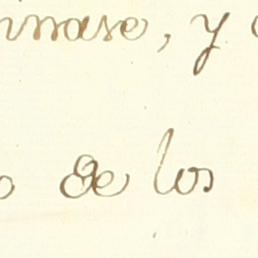 nnase, y
de los